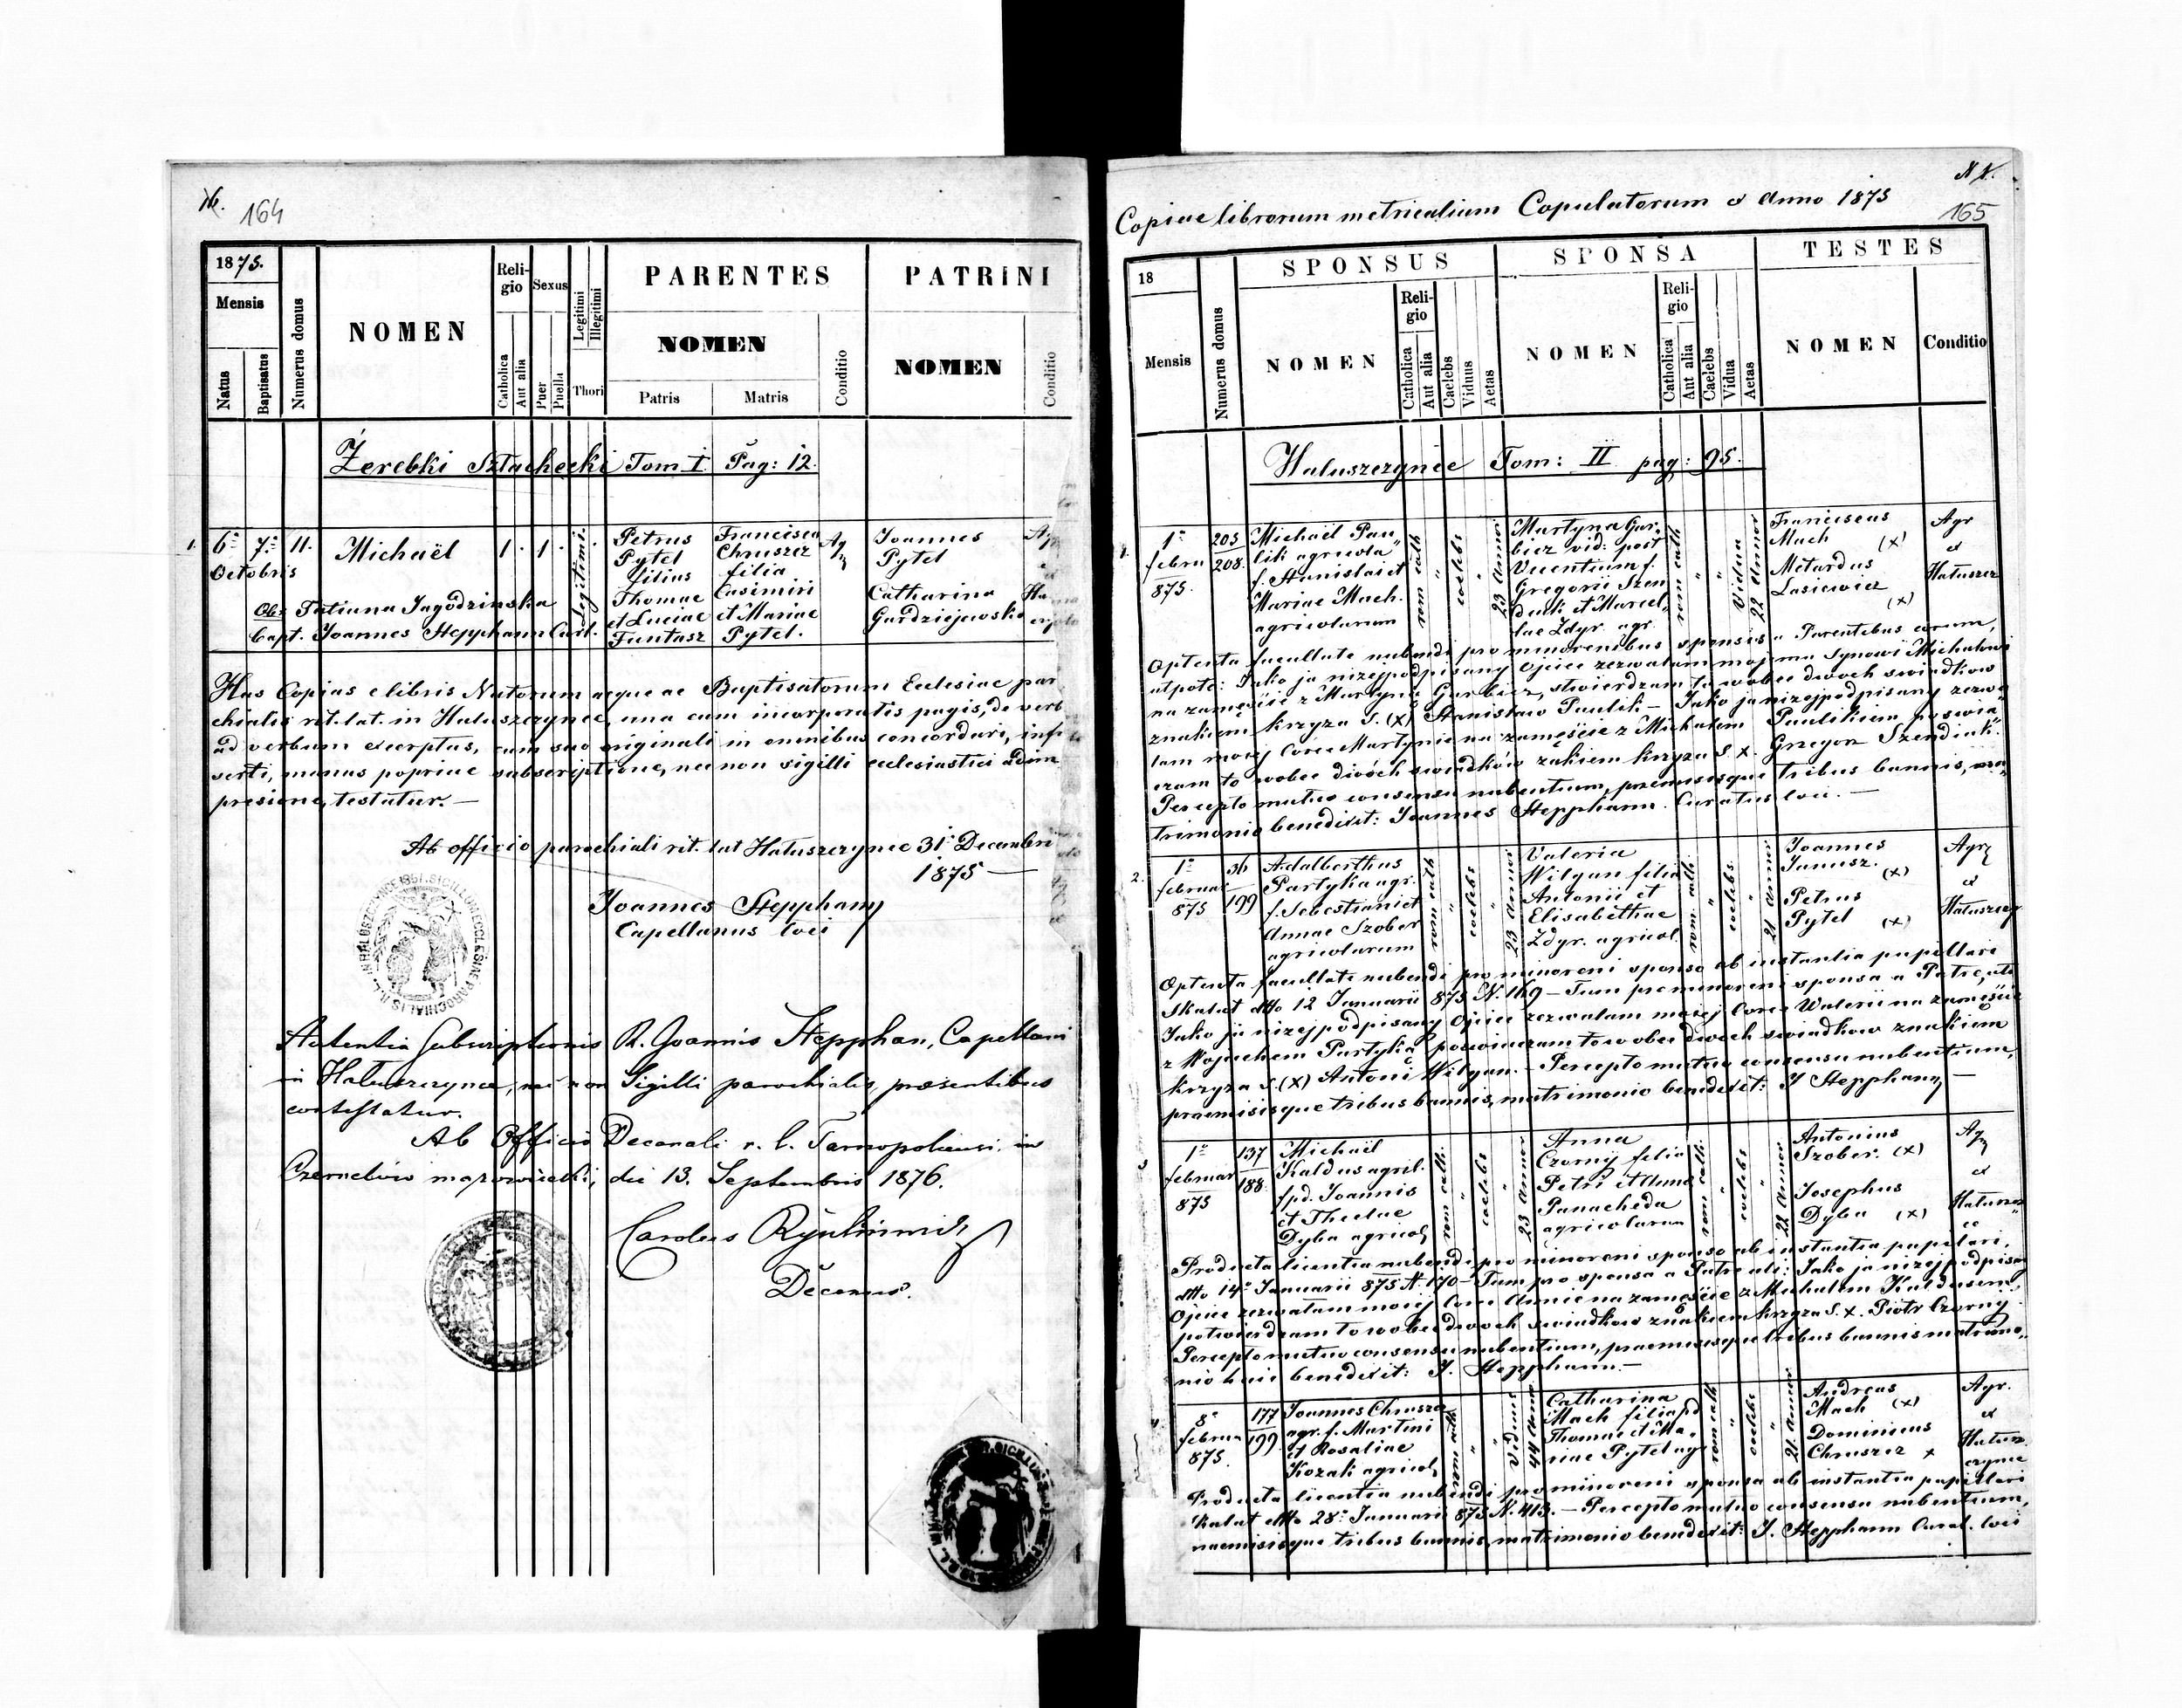 164
1875.
Mensis
Natus
Baptisatus
Numerus domus
NOMEN
Religio
Catholica
Aut alia
Sexus
Puer
Puella
Legitimi
Illegitimi
Thori
PARENTES
NOMEN
Patris
Matris
Conditio
PATRINI
NOMEN
Conditio
Żerebki Szlacheckie Tom I Pag: 12.
1. 6a 7a 11. Michaël 1 . 1 . Legitimi.
Octobris
Obs Tatiana Jagodzinska
bapt. Joannes Stepphann Curt.
Petrus
Pytel
filius
Thomae
et Luciae
Funtasz
Francisca
Chruszcz
filia
Casimiri
et Mariae
Pytel.
Joannes
Pytel
Catharina
Gardziejewska
Has Copias e libris Natorum aeque ac Baptisatorum Ecclesiae par
chialis rit. lat. in Hałuszczynce, una cum incorporatis pagis, de verb
ad verbum excerptas, cum suo originali in omnibus concordari, inf
serti, manus popriae subscriptione, nec non sigilli ecclesiastici adim
presione, testatur. —
Ab officio parochiali rit. lat Hałuszczynce 31 Decembri
1875 —
Joannes Stepphann
Capellanus loci
Autentia Subscriptionis R. Joannis Stepphan, Capellani
in Hałuszczynce, nec non Sigilli parochialis, praesentibus
contestatur.
Ab Officio Decanali r. l. Tarnopoliensi, in
Czernelów mazowiecki, die 13. Septembris 1876.
Carolus
Decanus.
165
Copiae librorum metricalium Copulatorum d Anno 1875
18
Mensis
Numerus domus
SPONSUS
NOMEN
Religio
Catholica
Aut alia
Caelebs
Viduus
Aetas
SPONSA
NOMEN
Religio
Catholica
Aut alia
Caelebs
Vidua
Aetas
TESTES
NOMEN
Conditio
Hałuszczynce Tom: II pag: 95.
1. 1a
febru
875.
205
208.
Michaël Pau„
lik agricola
f. Stanislai et
Mariae Mach.
agricolarum
rom cath
coelebs
23 Annor
Martyna Gar„
biez vid: post
Vicentium f.
Gregorii Szen
diuk et Marcel„
lae Zdyr. agr.
rom cath
Vidua
22 Annor
Franciscus
Mach (x)
Metardus
Lasiewicz
(x)
Agr
et
Hałuszcz
Optenta facultate nubendi pro minorenibus sponsis a Parentibus eorum,
utpote: Jako ja niżejpodpisany Ojciec zezwalam mojemu Synowi Michałowi
na zamęście z Martyną Garbiez, stwierdzam to wobec dwóch swiadkow
znakiem krzyza S. (x) Stanisław Paulik — Jako ja nizejpodpisany zezwa
lam mojej Córce Martynie na zamęście z Michałem Paulikiem poswia
czam to wobec dwóch swiadków zakiem krzyza S. x. Grzegorz Szendiuk.
Percepto mutuo consensu nubentium, premisisque tribus bannis, ma„
trimonio benedixit: Joannes Stepphann. Curatus loci. —
2. 1a
februar
875
36
199
Adalberthus
Partyka agr.
f. Sebestiani et
Annae Szober
agricolarum
rom cath
coelebs
23 Annor
Valeria
Witgan filia
Antonii et
Elisabethae
Zdyr. agricol.
rom. cath
coelebs.
21 Annor
Joannes
Janusz.
(x)
Petrus
Pytel (x)
Agr
et
Hałuszcz
Optenta facultate nubendi pro minoreni sponso ab instantia pupillari
Skałat dtto 12 Januarii 875 N. 169 — Tum pro minoreni sponsa a Patre, uti
Jako ja nizejpodpisany Ojciec zezwalam mojej Corce Walerii na zamęście
z Wojciechem Partyką, potwierdzam to wobec dwoch swiadkow znakiem
krzyza S. (x) Antoni Witgan. — Percepto mutuo consensu nubentium,
praemisisque tribus bannis, matrimonio benedixit: J Stepphann —
3 1a
februar
875
137
188.
Michaël
Kaldus agril.
fpd. Joannis
et Theclae
Dyba agricol
rom cath.
coelebs
23 Annor
Anna
Czornij filia
Petri et Annae
Panacheda
agricolarum
rom cath.
coelebs
22 Annor
Antonius
Szober. (x)
Josephus
Dyba (x)
Agr
et
Hałuszcz
ce
Producta licentia nubendi pro minoreni sponso ab instantia pupilari,
dtto 14a Januarii 875 N. 170 — Tum pro sponsa a Patre uti: Jako ja nizej podpisany
Ojciec zezwalam mojej Corce Annie na zamęście z Michałem Kaldusem
potwierdzam to wobec dwóch swiadkow znakiem krzyza S. x. Piotr Czorny
Percepto mutuo consensu nubentium, praemisisque tribus bannis matrimo„
nio huic benedixit: J. Stepphann. —
4. 8a
februa
875.
177
199
Joannes Chruszcz
agr. f. Martini
et Rosaliae
Kozak agricol
rom cath
Viduus
44 Annor
Catharina
Mach filia pd
Thomae et Ma„
riae Pytel agr
rom cath
coelebs
21 Annor
Andreas
Mach (x)
Dominicus
Chruszcz x
Agr.
et
Hałusz
czynce
Producta licentia nubendi pro minoreni sponsa ab instantia pupillari
Skałat dtto 28a Januarii 875 N. 413. — Percepto mutuo consensu nubentium,
praemisisque tribus bannis, matrimonio benedixit: J. Stepphann Curat. loci